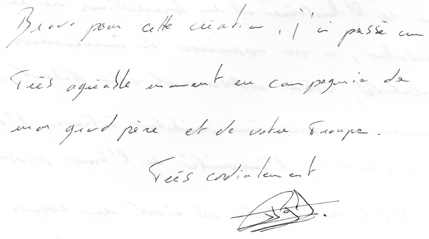 Bravo pour cette création, j'ai passé un
Très agréable moment en compagnie de
mon grand père et de votre Troupe.
Très cordialement